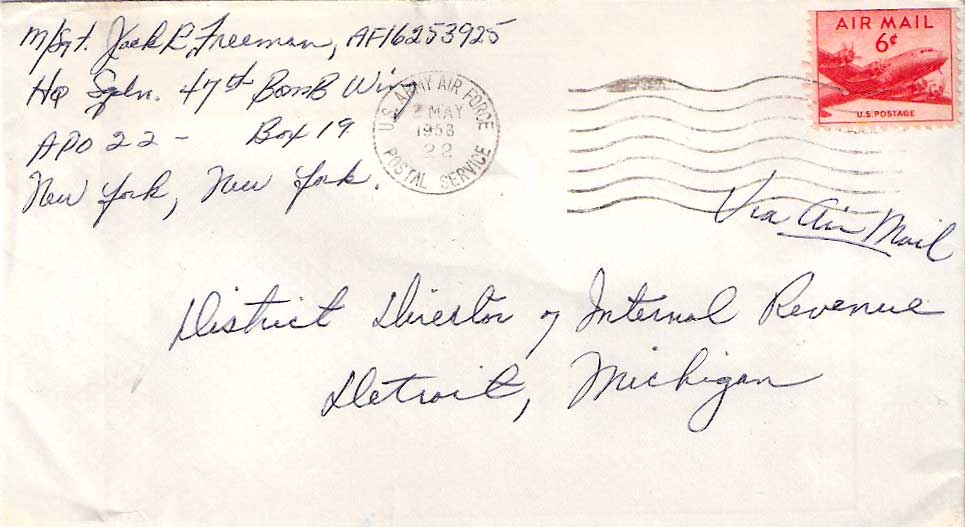 M/Sgt. Jack R. Freeman, AF16253925
Hq Sqdn. 47th Bomb Wing
APO 22 - Box 19
New York, New York.
U.S. ARMY AIR FORCE
2 MAY
1953
22
POSTAL SERVICE
AIR MAIL
6¢
U.S. POSTAGE
Via Air Mail
District Director of Internal Revenue
Detroit, Michigan